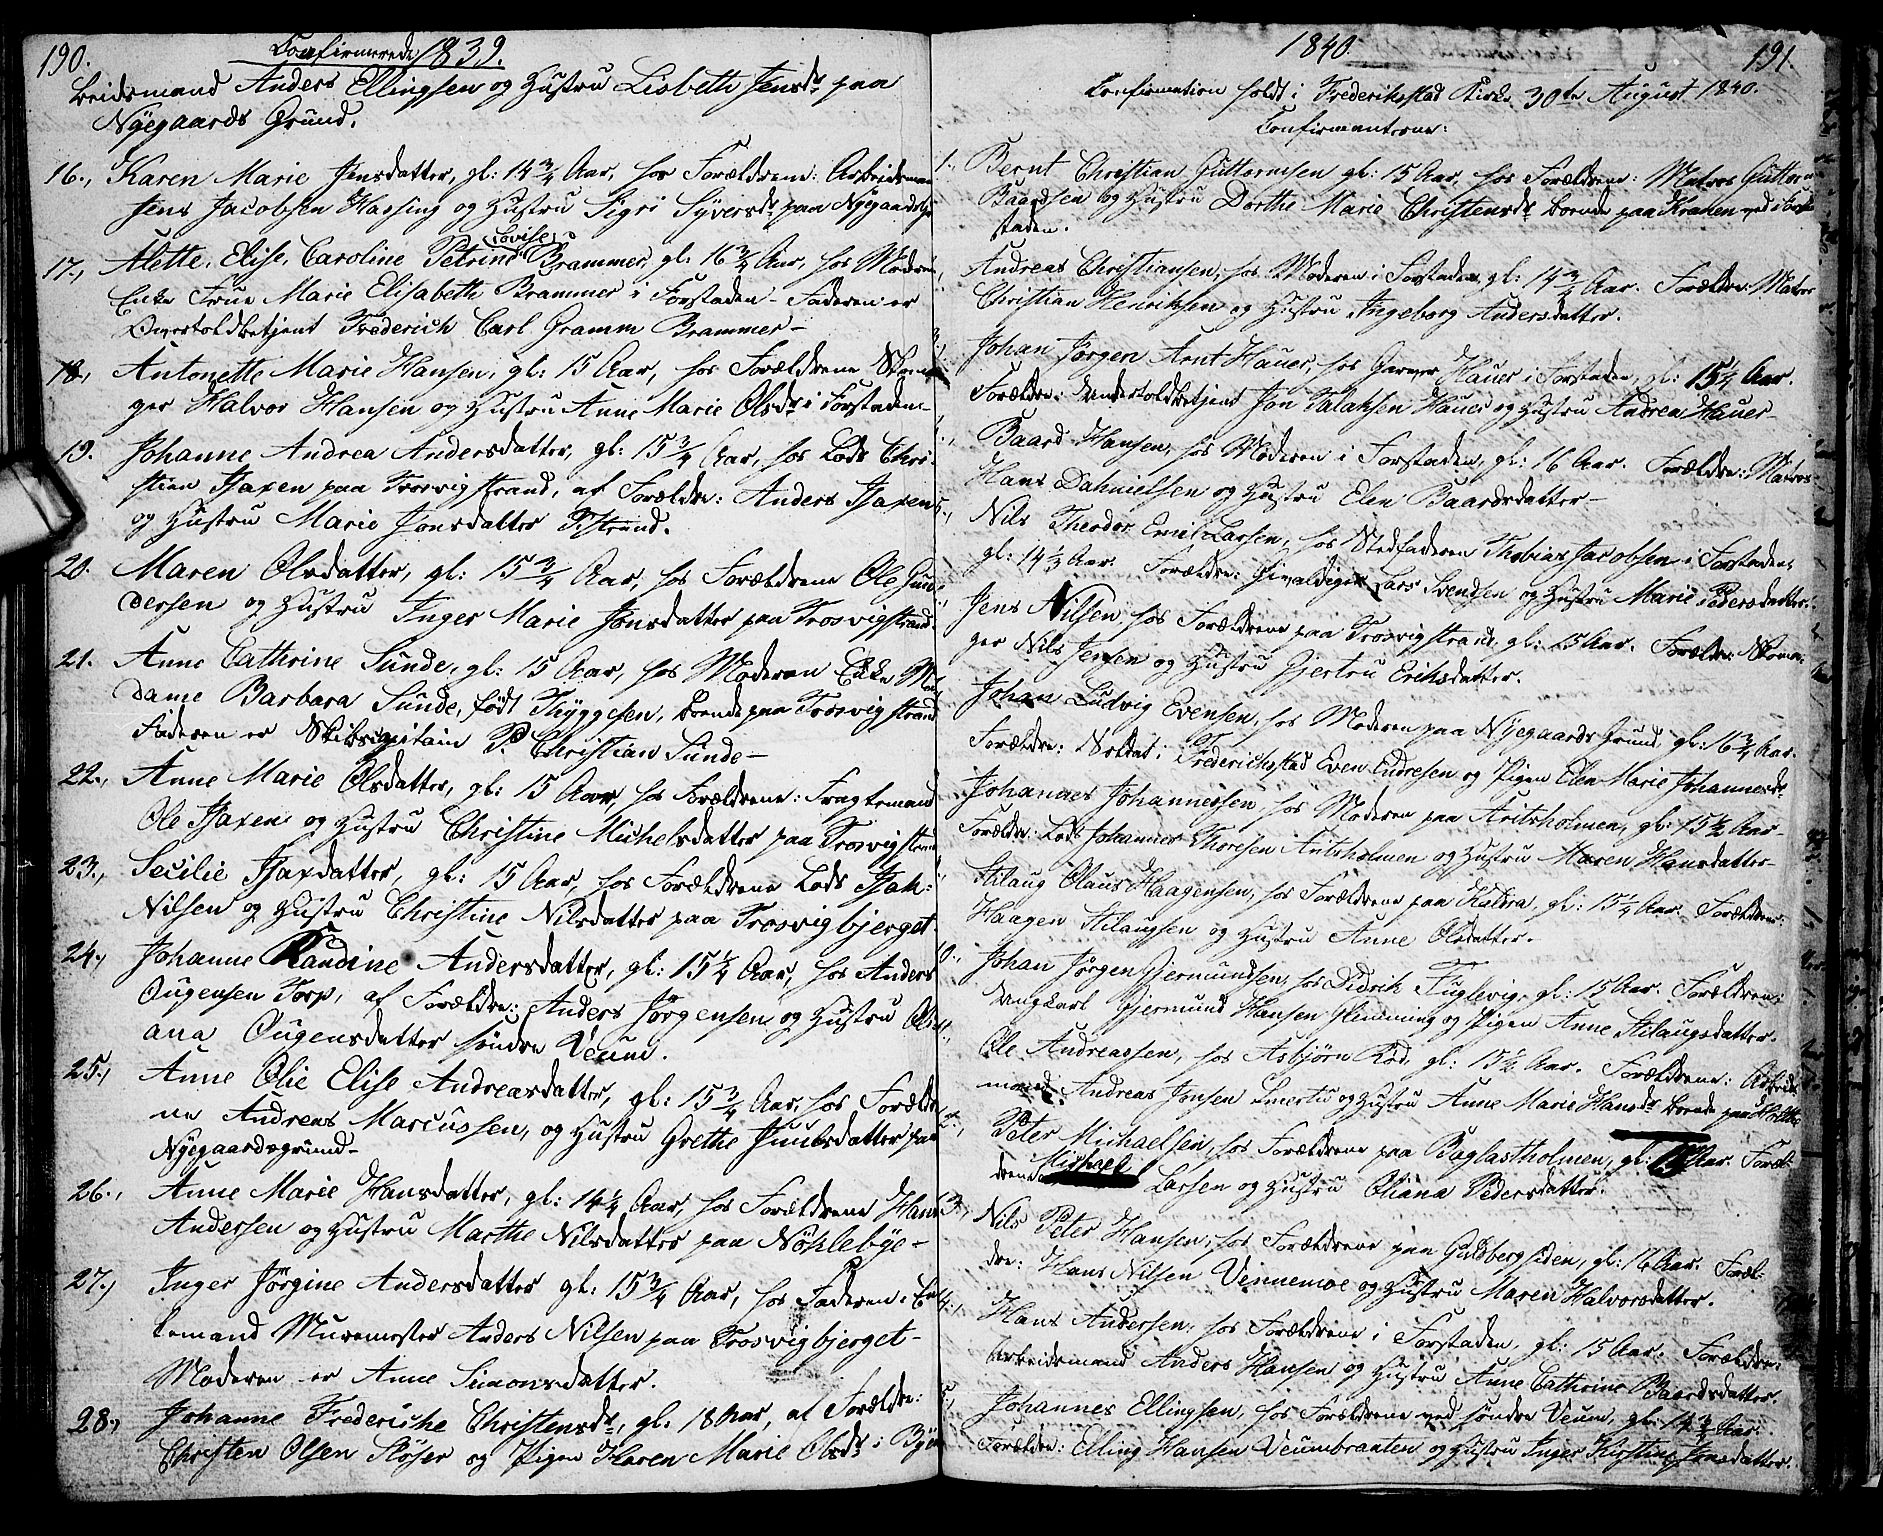 190.
Confirmerede 1839.
beidsmand Anders Ellingsen og Hustru Lisbeth Jensdr paa
Nyegaards Grund.
16., Karen Marie Jensdatter, gl: 14 3/4 Aar, hos Forældrene: Arbeidsman
Jens Jacobsen Hassing og Hustru Sigri Syversdr paa Nyegaards
17., Alette, Elise, Caroline Petrine Lovise Brammer, gl: 16 3/4 Aar, hos Moderen
Enke Frue Marie Elisabeth Brammer i Forstaden - Faderen er
Overtoldbetjent Frederich Carl Gramm Brammer -
18., Antonette Marie Hansen, gl: 15 Aar, hos Forældrene Skoma
ger Halvor Hansen og Hustru Anne Marie Olsdr i Forstaden -
19. Johanne Andrea Andersdatter, gl: 15 3/4 Aar, hos Lods Chri-
stian Isaxen paa Trosvigstrand, af Forældre: Anders Isaxen
og Hustru Marie Jonsdatter Tstrand.
20. Maren Olsdatter, gl: 15 3/4 Aar, hos Forældrene Ole Gun
dersen og Hustru Inger Marie Jonsdatter paa Trosvigstrand.
21. Anne Cathrine Sunde, gl: 15 Aar, hos Moderen Enke Ma
dame Barbara Sunde, født Thyggesen, boende paa Trosvigstrand
Faderen er Skibscapitain P. Christian Sunde -
22., Anne Marie Olsdatter, gl: 15 Aar, hos Forældrene: Fragtemand
Ole Isaxen og Hustru Christine Michelsdatter paa Trosvigstrand
23., Secilie Isaxdatter, gl: 15 Aar, hos Forældrene Lods Isak
Nilsen og Hustru Christine Nilsdatter paa Trosvigbjerget.
24., Johanne Randine Andersdatter, gl: 15 1/4 Aar, hos Anders
Ougensen Torp, af Forældre: Anders Jörgensen og Hustru Oli
ana Ougensdatter söndre Veum.
25., Anne Olie Elise Andreasdatter, gl: 15 3/4 Aar, hos Foræld
ne Andreas Marcussen, og Hustru Grethe Juulsdatter paa
Nyegaardsgrund -
26., Anne Marie Hansdatter, gl: 14 1/2 Aar, hos Forældrene Hans
Andersen og Hustru Marthe Nilsdatter paa Nöklebye -
27., Inger Jörgine Andersdatter gl: 15 3/4 Aar, hos Faderen: En
kemand Muremester Anders Nilsen paa Trosvigbjerget -
Moderen er Anne Simonsdatter.
28., Johanne Frederiche Christensdr, gl: 18 Aar, af Forældre:
Christen Olsen Slöser og Pigen Karen Marie Olsdr i Byen
1840.
191.
Confirmation holdt i Frederiksstad Kirke 30te August 1840.
Confirmanterne:
1. Bernt Christian Guttormsen gl: 15 Aar, hos Forældrene: Matros Guttorm
Baardsen og Hustru Dorthe Marie Christensdr boende paa Kranen ved
staden.
Andreas Christiansen, hos Moderen i Forstaden, gl: 14 3/4 Aar. Forældre: Matros
Christian Henriksen og Hustru Ingeborg Andersdatter.
Johan Jörgen Arnt Hauer, hos Garver Hauer i Forstaden, gl: 15 1/2 Aar.
Forældre: Undertoldbetjent Jan Talaksen Hauer og Hustru Andrea Hauer -
Baard Hansen, hos Moderen i Forstaden, gl: 16 Aar. Forældre: Matros
Hans Dahnielsen og Hustru Elen Baardsdatter -
5., Nils Theodor Emil Larsen, hos Stedfaderen Thobias Jacobsen i Forstaden,
gl: 14 1/2 Aar. Forældre: Lars Svendsen og Hustru Marie Pedersdatter.
Jens Nilsen, hos Forældrene paa Trosvigstrand, gl: 15 Aar. Forældre: Skoma-
ger Nils Jensen og Hustru Gjertru Eriksdatter.
Johan Ludvig Evensen, hos Moderen paa Nyegaards Grund, gl: 16 3/4 Aar.
Forældre: Soldat i Frederichsstad Even Endresen og Pigen Elen Marie Johannesdr
Johannes Johannessen, hos Moderen paa Arisholmen, gl: 15 1/2 Aar -
Forældre: Lods Johannes Thoresen Arisholmen og Hustru Maren Hansdatter -
Stilaug Olaus Haagensen, hos Forældrene paa Kalera, gl: 15 1/4 Aar. Forældrene:
Haagen Stilaugsen og Hustru Anne Olsdatter.
10., Johan Jörgen Gjermundsen, hos Didrik Fuglevig, gl: 15 Aar. Forældrene:
Ungkarl Gjermund Hansen Glemming og Pigen Anne Stilaugsdatter.
Ole Andreassen, hos Asbjörn Röd, gl: 15 1/2 Aar. Forældrene: Arbeids
mand Andreas Jonsen og Hustru Anne Marie Hansdr boende paa
2., Peter Michaelsen, hos Forældrene paa Buglastholmen, gl: Aar. Foræl-
drene Michael Larsen og Hustru Oliana Pedersdatter.
3., Nils Peter Hansen, hos Forældrene paa Guldbergsiden, gl: 16 Aar. Foræl-
dre: Hans Nilsen Vennemoe og Hustru Maren Halvorsdatter.
4., Hans Andersen, hos Forældrene i Forstaden, gl: 15 Aar. Forældre:
Arbeidsmand Anders Hansen og Hustru Anne Cathrine Baardsdatter.
5., Johannes Ellingsen, hos Forældrene ved söndre Veum, gl: 14 3/4 Aar.
Forældre: Elling Hansen Veumbraaten og Hustru Inger Kirstine Jensdatter.